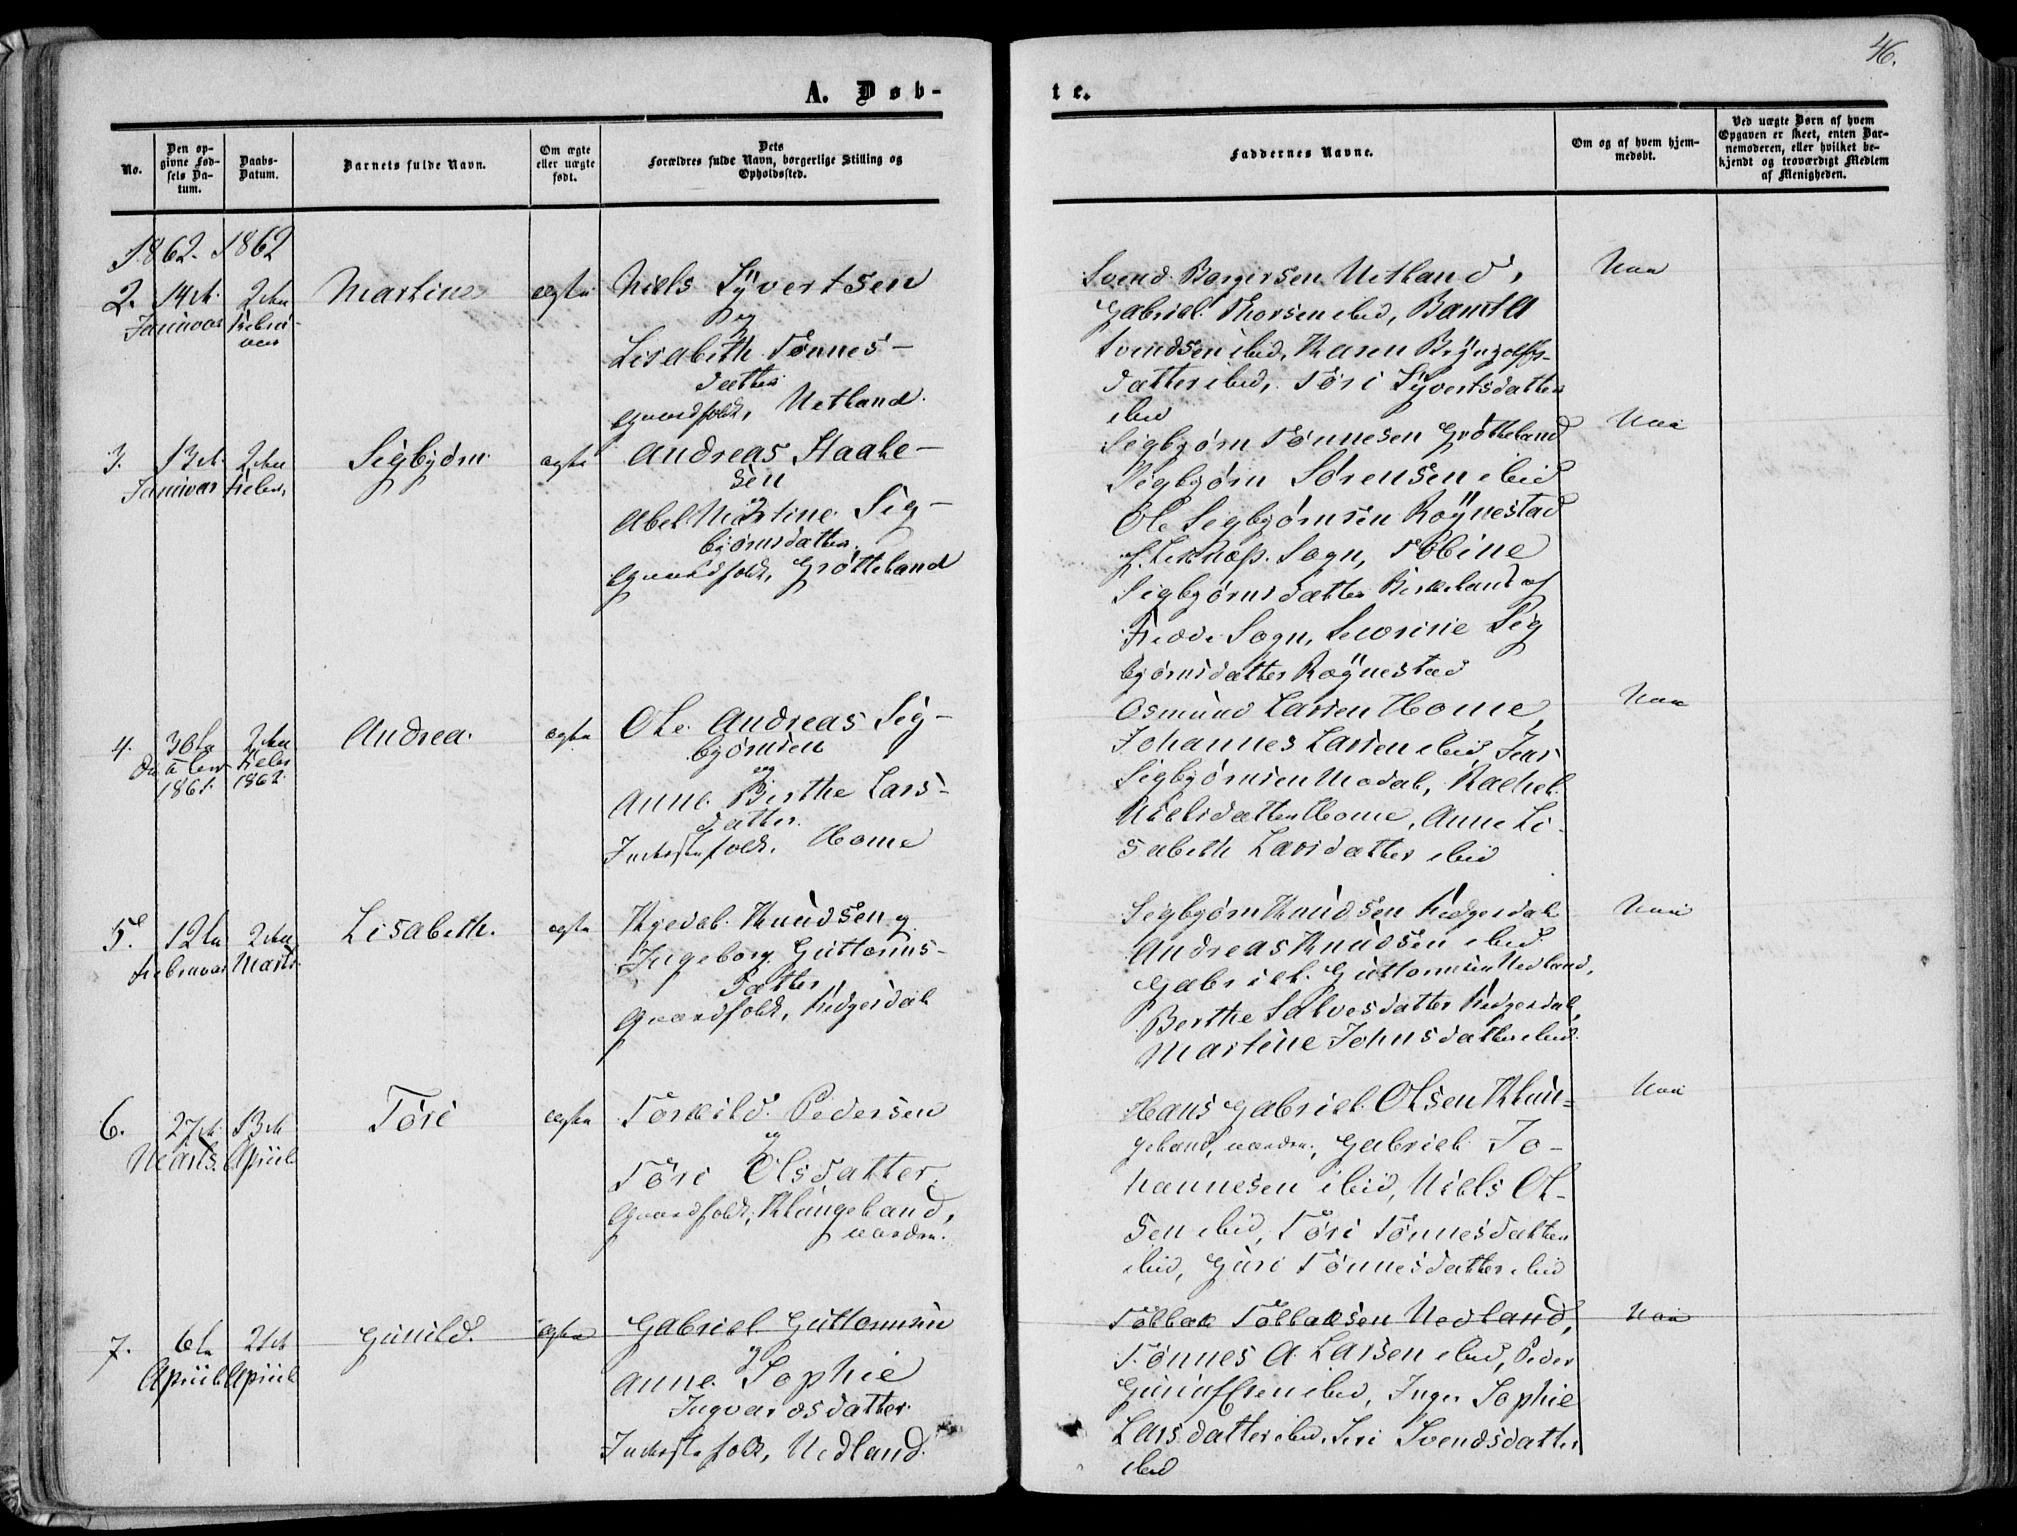 46.
A. Døb-
te.
No.
Den op-
givne Fød-
sels Da-
tum.
Daabs-
Datum.
Barnets fulde Navn.
Om ægte
eller uægte
født.
Dets
Forældres fulde Navn, borgerlige Stilling og
Opholdssted.
Faddernes Navne.
Om og af hvem hjem-
medøbt.
Ved uægte Børn af hvem
Opgaven er skeet, enten Bar-
nemoderen, eller hvilket be-
kjendt og troværdigt Medlem
af Menigheden.
1862. 1862
2. 14de
Januar
2den
Februar
Martine
ægte
Niels Syvertsen
og
Lisabeth Tønnes-
datter
Gaardfolk, Netland.
Svend Netland,
Gabriel Thorsen ibid,
Svendsen ibid, Karen
datter ibid, Tøri Syvertsdatter
ibid
Nei
3. 13de
Januar
2den
Febr.
Sigbjørn
ægte
Andreas Staale-
sen
og
Abel Martine Sig-
bjørnsdatter
Gaardfolk, Grøtteland
Sigbjørn Tønnesen Grøtteland
Sigbjørn Sørensen ibid
Ole Sigbjørnsen Røÿnestad
Sogn, Tobine
Sigbjørnsdatter Birkeland af
Fede Sogn, Severine Sig
bjørnsdatter Røÿnestad
Nei
4. 30te
1861.
2den
Febr
1862.
Andrea.
ægte
Ole Andreas Sig-
bjørnsen
og
Anne Birthe Lars-
datter
folk, Home
Osmund Larsen Home,
Johannes Larsen ibid, Jens
Sigbjørnsen Modal, Rachel
Nielsdatter Home, Anne Li-
sabeth Larsdatter ibid
Nei
5. 12te
Februar
2den
Marts.
Lisabeth.
ægte
Knudsen og
Ingeborg Guttorms-
datter
Gaardfolk, Kidgersdal
Sigbjørn Knudsen Kidgersdal
Andreas Knudsen ibid
Gabriel Guttormsen Nedland,
Berthe Salvesdatter Kidgersdal,
Martine Johnsdatter ibid.
Nei
6. 27de
Marts.
13de
April
Tøri
ægte
Torkild Pedersen
og
Tøri Olsdatter.
Gaardfolk, Klungeland,
nordre.
Hans Gabriel Olsen Klun-
geland, nordre, Gabriel Jo-
hannesen ibid, Niels Ol-
sen ibid, Tøri Tønnesdatter
ibid, Guri Tønnesdatter ibid
Nei
7. 6te
April
21de
April
Gunild.
ægte
Gabriel Guttormsen
og
Anne Sophie
Ingvardsdatter
folk, Nedland.
Tollak Tollaksen Nedland,
Tønnes A. Larsen ibid, Peder
ibid, Inger Sophie
Larsdatter ibid. Siri Svendsdatter
ibid
Nei